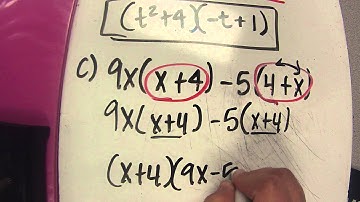 (t²+4)(-t+1)
c) 9x(x+4)-5(4+x)
9x(x+4)-5(x+4)
(x+4)(9x-5